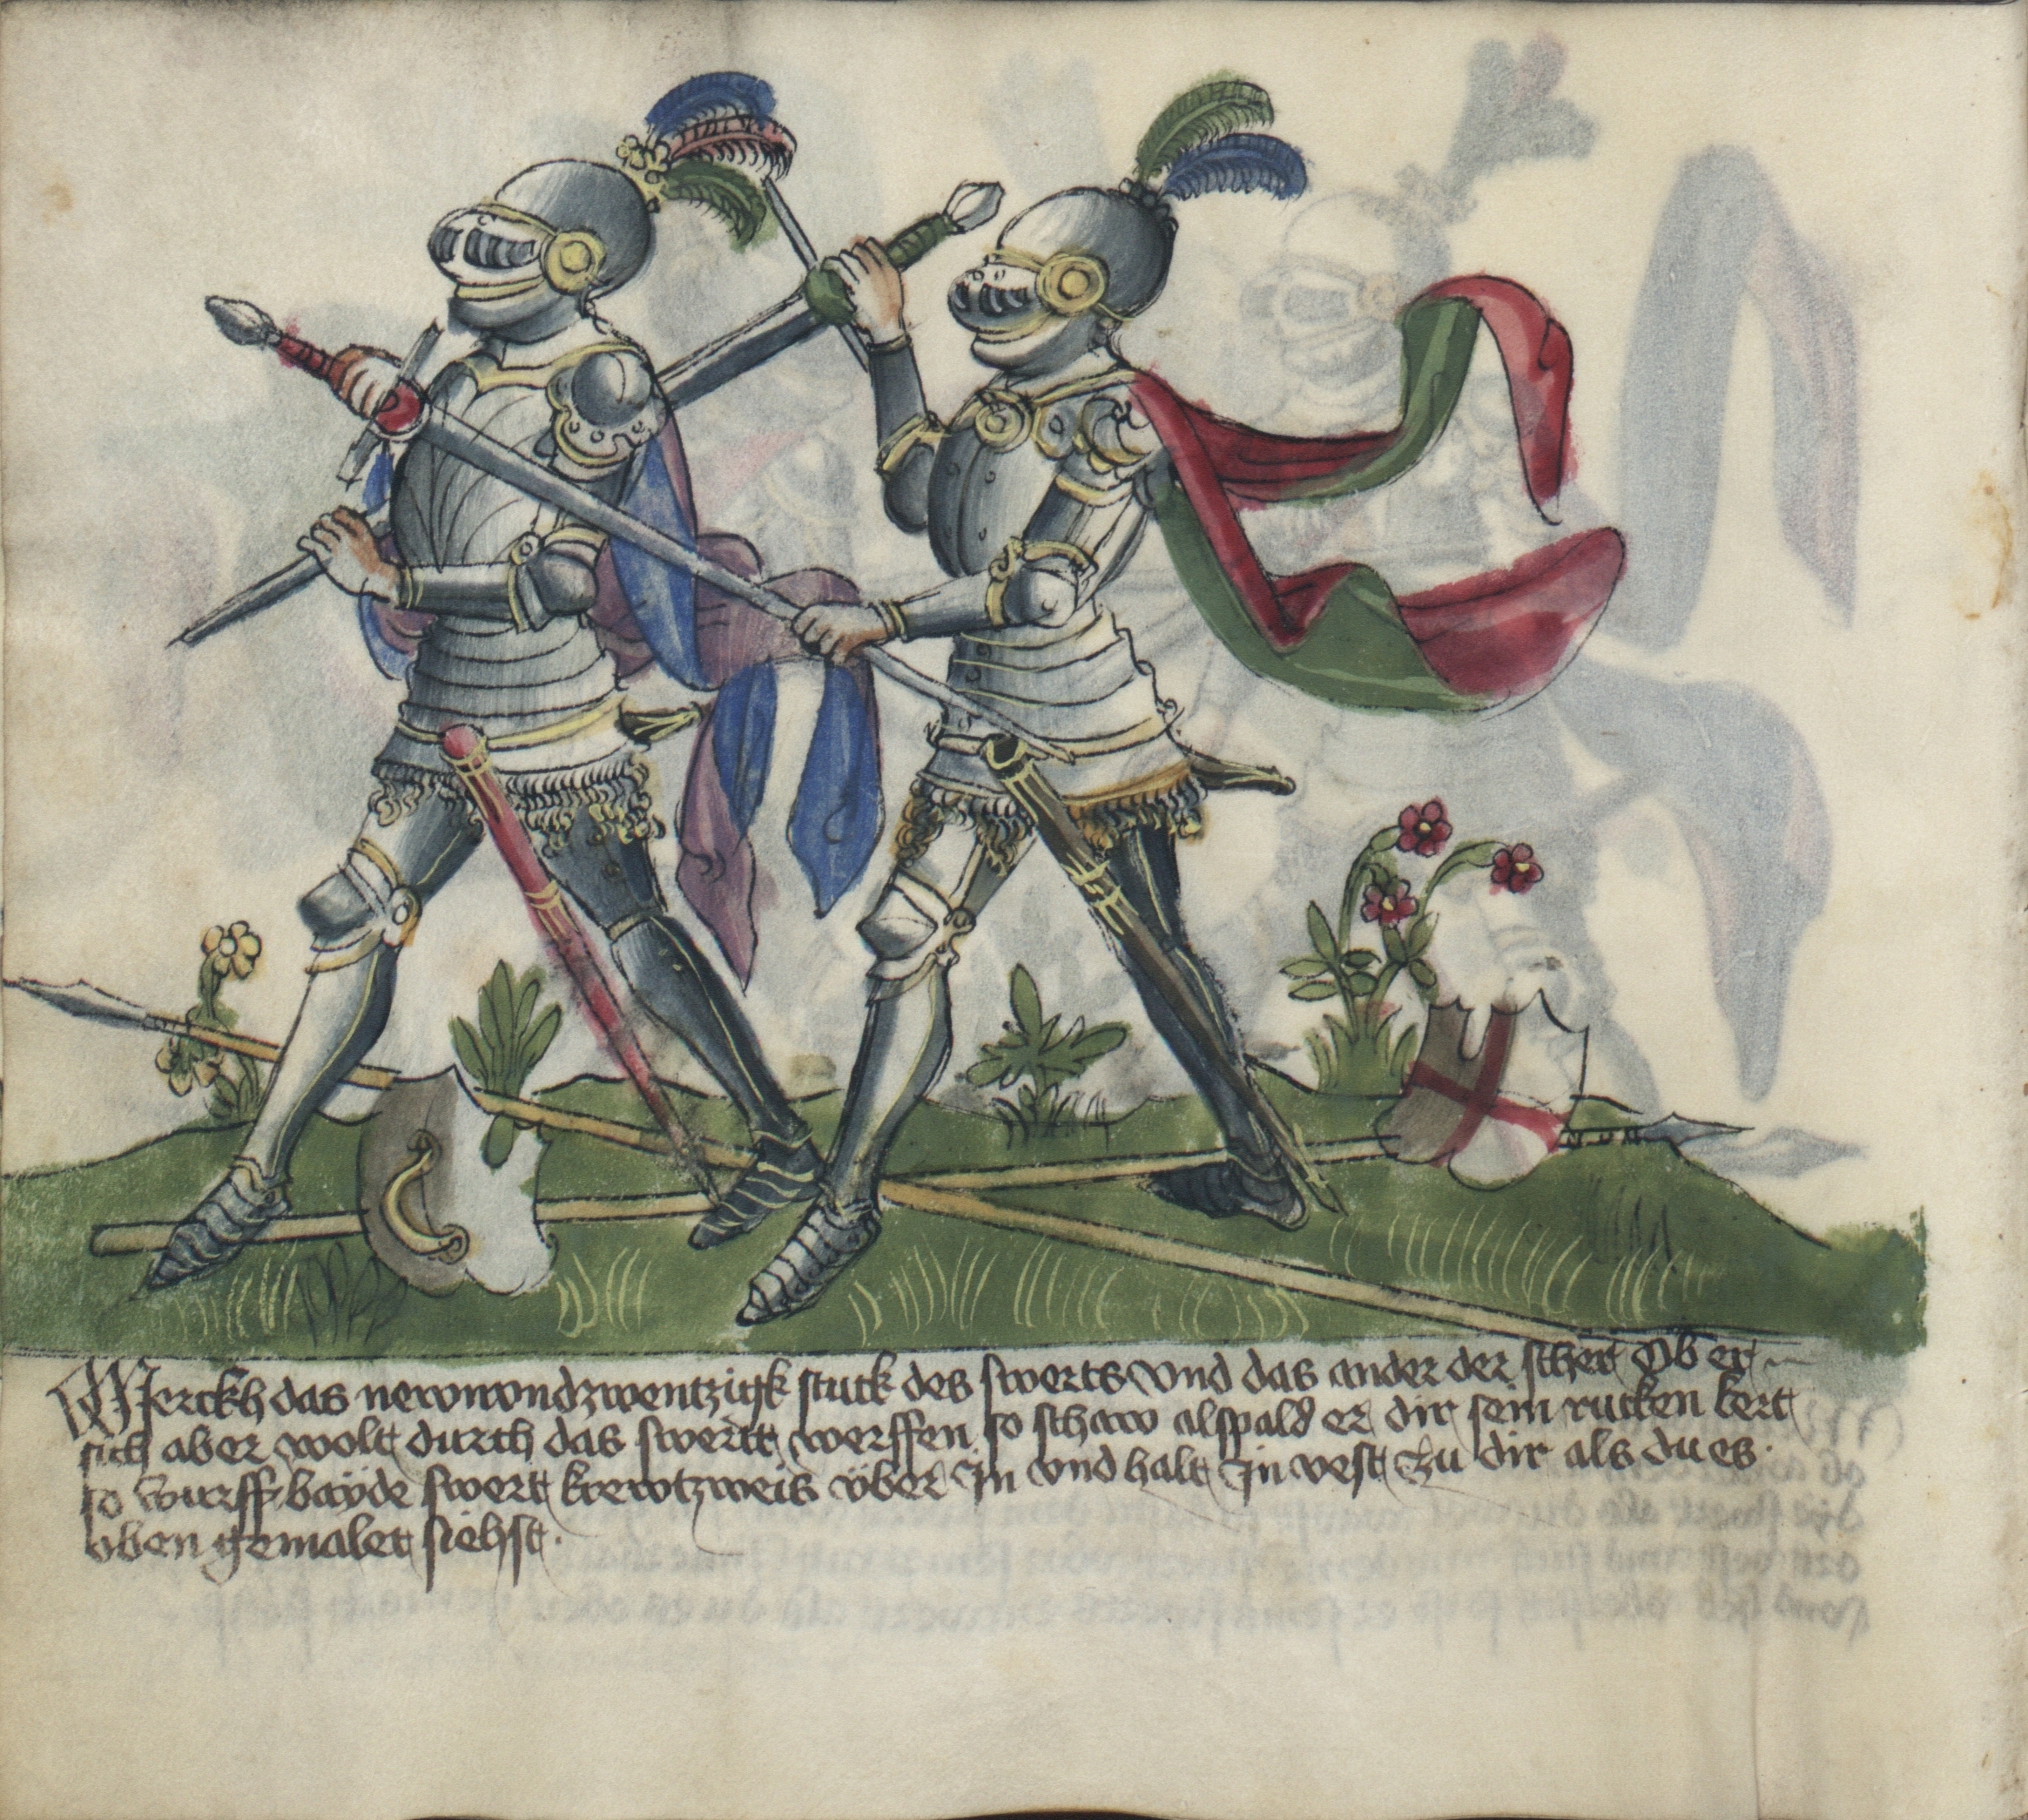 Merckh das newnvndzwentzigk stuck des swerts vnd das ander der scher Ob er
sich aber wolt durch das swertt werffen so schaw alspald er dir sein rucken kert
so wurff bayde swert krewtzweis vber In vnd halt In vest zu dir als du es
oben gemalet siehst.